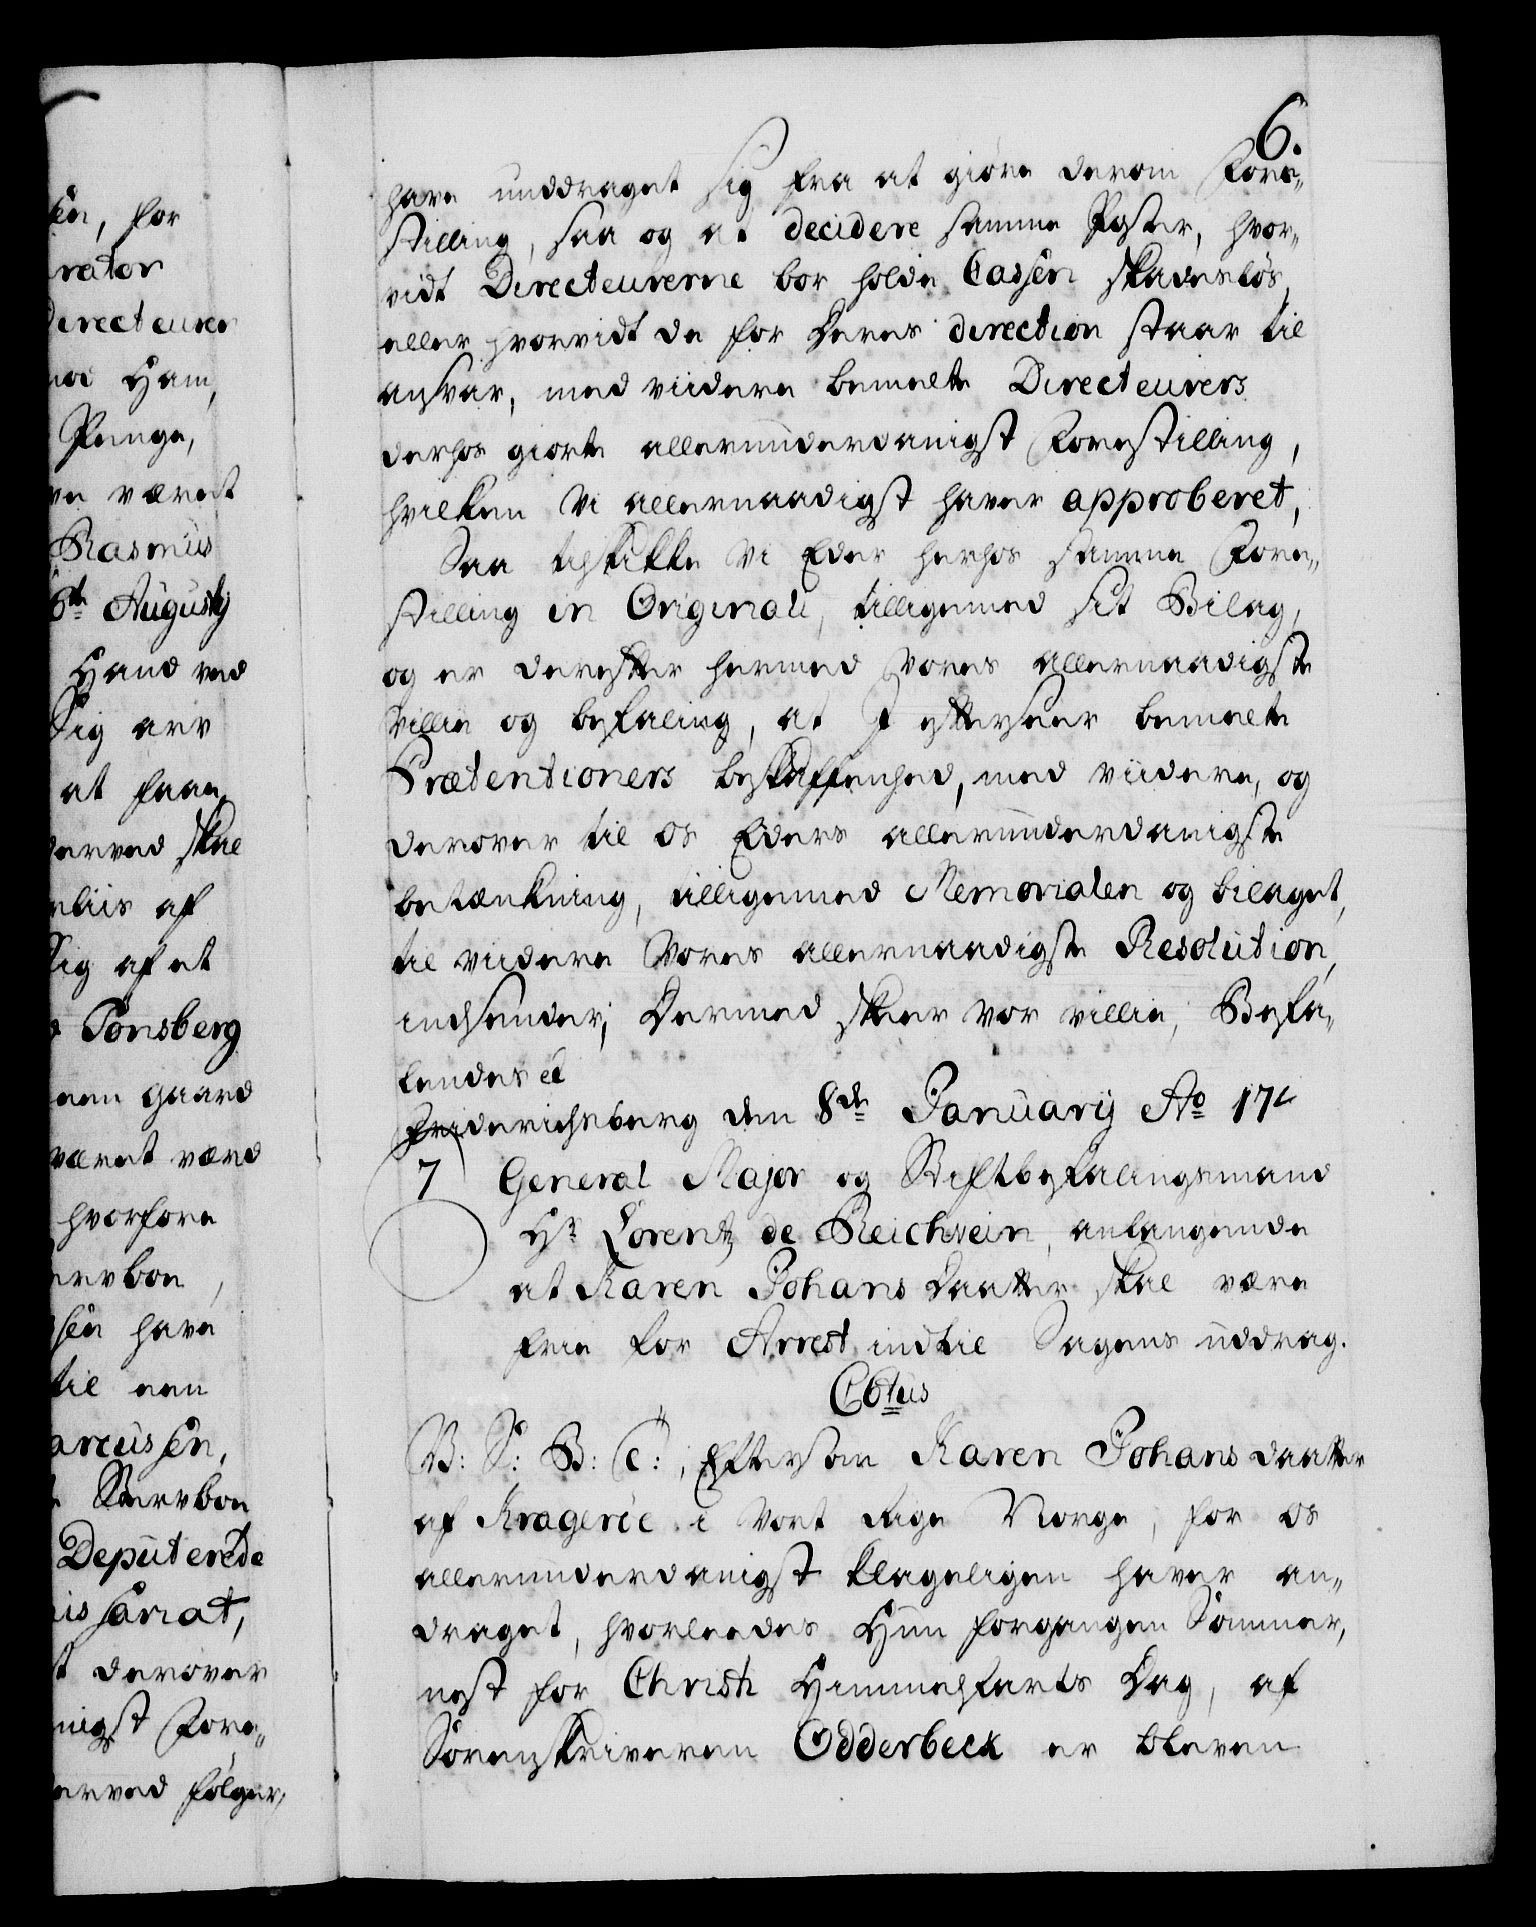 6.
have unddraget sig fra at giöre derom Fore-
stilling, saa og at decidere samme Poster, hvor-
vidt Directeurerne bör holde Cassen skadeslös,
eller hvorvidt de for deres direction staar til
ansvar, med viidere bemelte Directeurers
derhos giorte allerunderdanigst Forestilling,
hvilken Vi allernaadigst haver approberet,
Saa tilskikke Vi Eder herhos samme Fore-
stilling in Originali, tilligemed sit Bilag,
og er derefter hermed Vores allernaadigste
Villie og befaling, at I efterseer bemelte
Prætentioners beskaffenhed, med viidere, og
derover til os Eders allerunderdanigste
betænkning, tilligemed Memorialen og bilaget,
til viidere Vores allernaadigste Resolution,
indsender; Dermed skeer vor villie, Befa-
lendes etc
Friderichsberg den 8de Januarij Ao 17
7 General Major og Stiftbefalingsmand
Hr Lorentz de Reichwein, anlangende
at Karen Johans Daatter skal være
frie for Arrest indtil Sagens uddrag.
C6tus
V: S: B: C:, Eftersom Karen Johans Daatter
af Krageröe i Vort Rige Norge, for os
allerunderdanigst klageligen haver an-
draget, hvorledes Hun forgangen Sommer,
nest for Christi Himmelfarts Dag, af
Sorenskriveren Odderbeck er bleven
sen, for
rator
Directeurer
Ham,
Penge,
være været
Rasmus
6te Augustij
Hand ved
Sig arv
at faae,
derved skal
af
Sig af et
Tønsberg
een gaard
været værd
hvorfore
Stervboe,
sen have
til een
arcussen,
Stervboe
Deputerede
issariat,
derover
nigst Fore-
derved fölger,